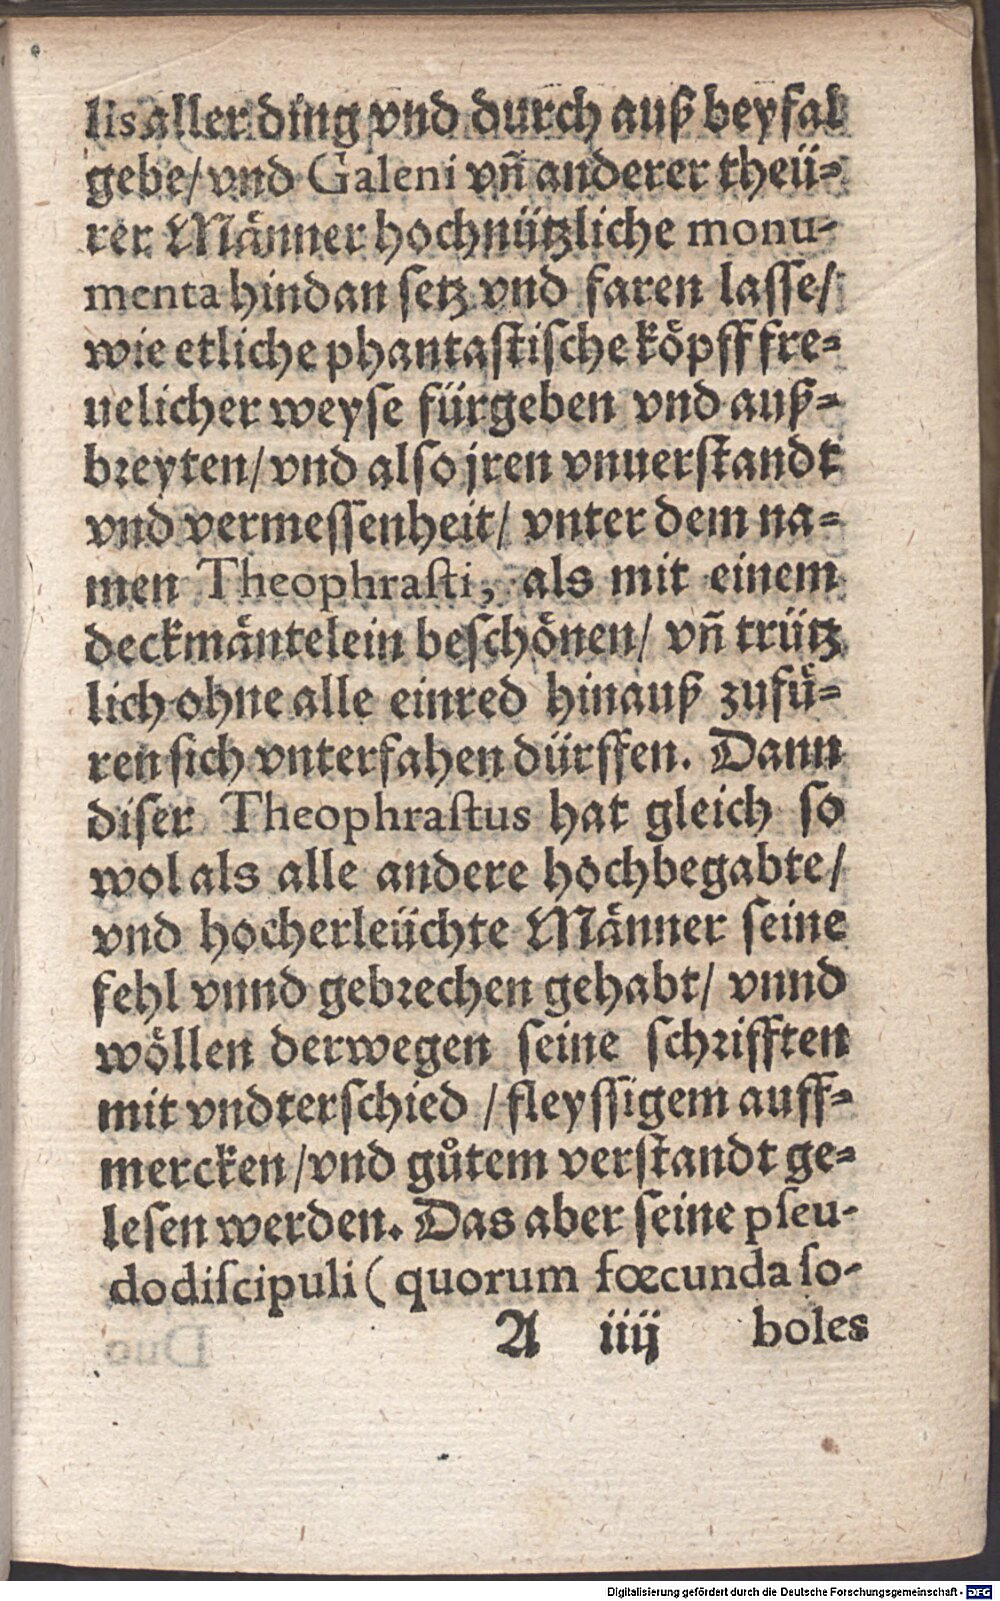 lis aller ding vnd durch auß beyfal
gebe/ vnd Galeni vñ anderer theü-
rer Männer hochnützliche monu-
menta hindan setz vnd faren lasse/
wie etliche phantastische köpff fre-
uelicher weyse fürgeben vnd auß-
breyten/ vnd also jren vnuerstandt
vnd vermessenheit/ vnter dem na-
men Theophrasti, als mit einem
deckmäntelein beschönen/ vñ trütz
lich ohne alle einred hinauß zufü-
ren sich vnterfahen dürffen. Dann
diser Theophrastus hat gleich so
wol als alle andere hochbegabte/
vnd hocherleüchte Männer seine
fehl vnnd gebrechen gehabt/ vnnd
wöllen derwegen seine schrifften
mit vndterschied / fleyssigem auff-
mercken/ vnd gůtem verstandt ge-
lesen werden. Das aber seine pseu-
dodiscipuli (quorum fœcunda so-
A iiij boles
Digitalisierung gefördert durch die Deutsche Forschungsgemeinschaft - DFG